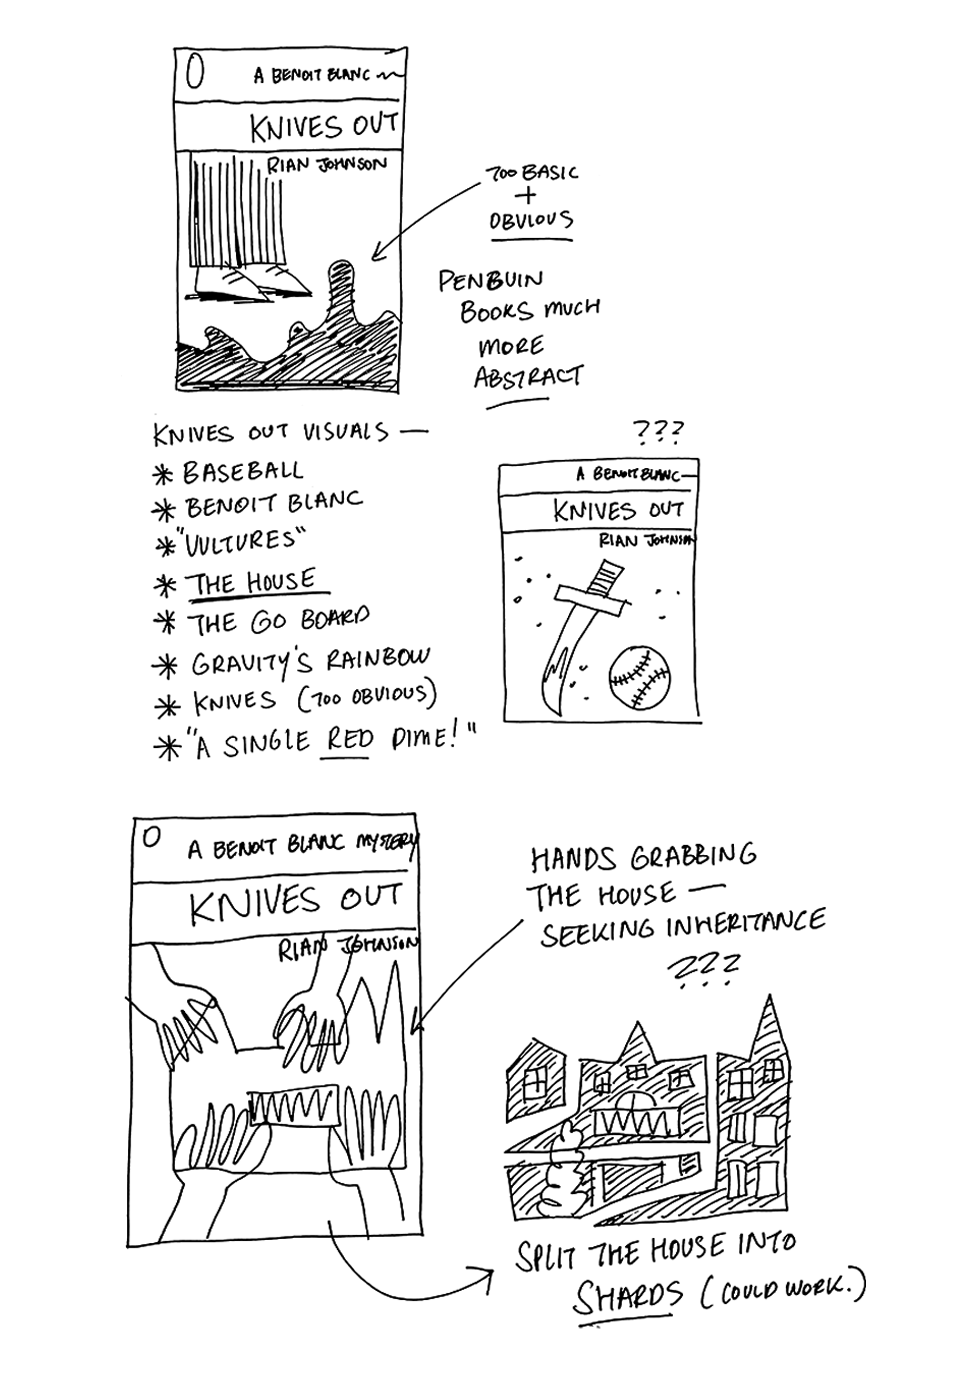 A BENOIT BLANC
KNIVES OUT
RIAN JOHNSON
TOO BASIC
+
OBVIOUS
PENGUIN
BOOKS MUCH
MORE
ABSTRACT
KNIVES OUT VISUALS —
* BASEBALL
* BENOIT BLANC
* "VULTURES"
* THE HOUSE
* THE GO BOARD
* GRAVITY'S RAINBOW
* KNIVES (TOO OBVIOUS)
* "A SINGLE RED DIME!"
???
A BENOIT BLANC—
KNIVES OUT
RIAN JOHNSON
A BENOIT BLANC MYSTERY
KNIVES OUT
RIAN JOHNSON
HANDS GRABBING
THE HOUSE —
SEEKING INHERITANCE
???
SPLIT THE HOUSE INTO
SHARDS (COULD WORK.)